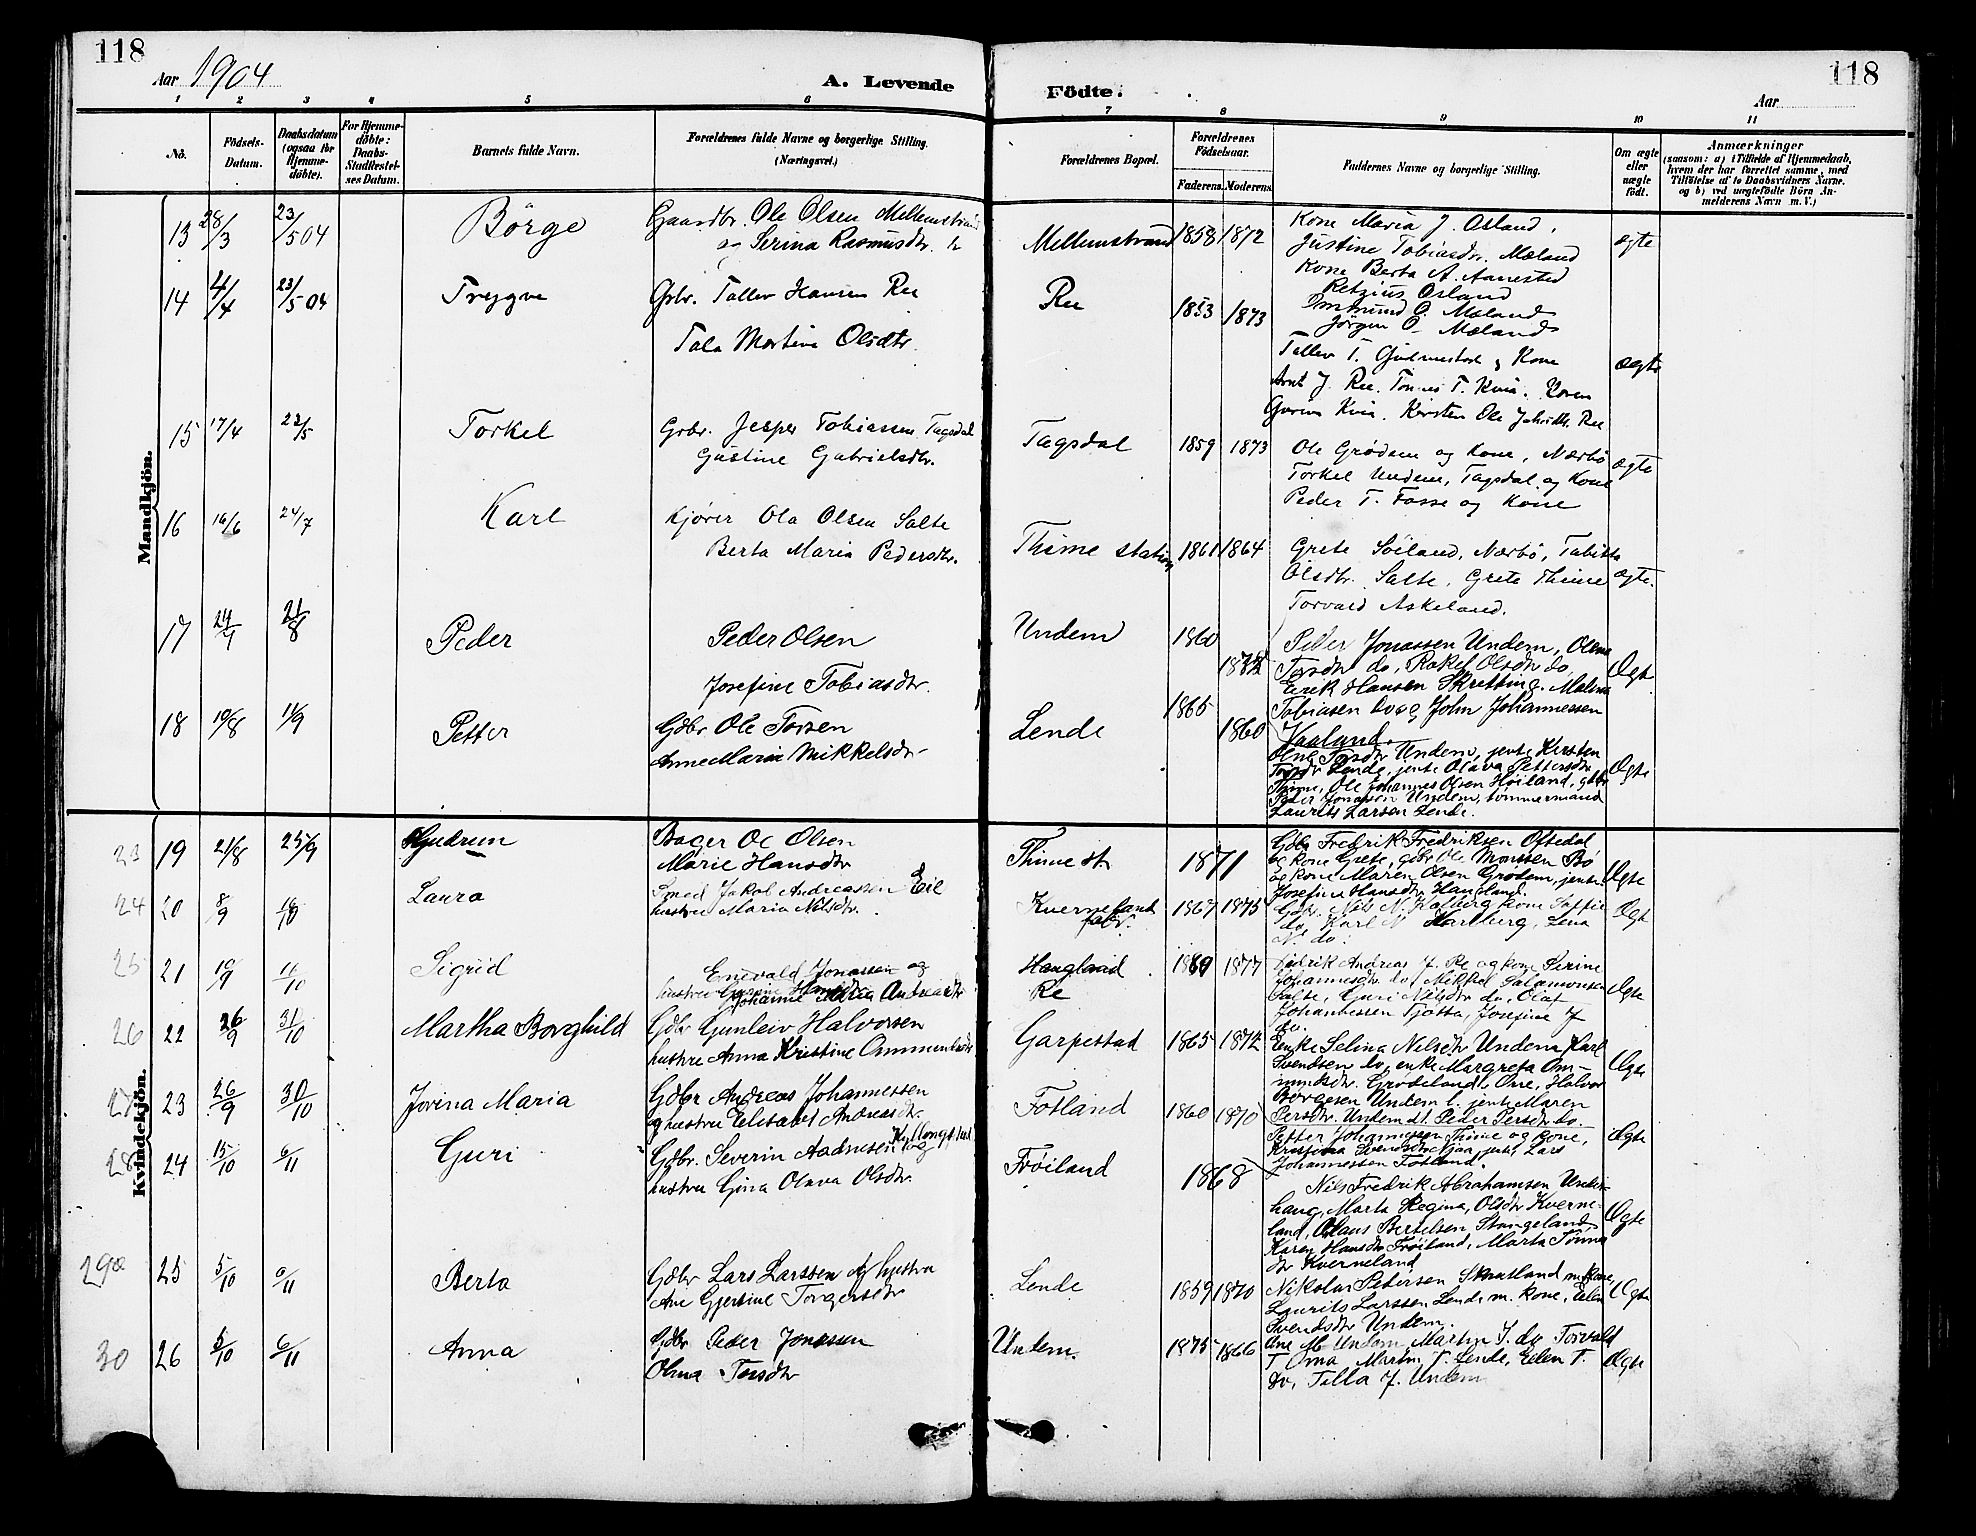 118
Aar 1904
A. Levende
Födte.
118
Aar
1 2 3 4 5 6 7 8 9 10 11
No.
Födsels-Datum.
Daabsdatum (ogsaa for Hjemme-döbte).
For Hjemme-döbte: Daabs-Stadfæstel-ses Datum.
Barnets fulde Navn.
Forældrenes fulde Navne og borgerlige Stilling. (Næringsvei.)
Forældrenes Bopæl.
Forældrenes Födselsaar.
Faderens. Moderens.
Faddernes Navne og borgerlige Stilling.
Om ægte eller uægte födt.
Anmærkninger
(saasom: a) i Tilfælde af Hjemmedaab, hvem der har forrettet samme, med Tilföielse af to Daabsvidners Navne, og b) ved uegtefödte Börn An-melderens Navn m. V.)
Mandkjön.
13 28/3 23/5 04 Börge Gaardbr. Ole Olsen Mellemstrand
og Serina Rasmusdtr.
Mellemstrand 1858 1872 Kone Maria J. Osland,
Justine Tobiasdtr. Mæland
Kone Berta A. Aanestad
Retzius Osland
Ommund O. Mæland
Jörgen O. Mæland
ægte
14 4/4 23/5 04 Trygve Grbr. Tallev Hansen Ree
Tala Martine Olsdtr.
Ree 1853 1873
Tallev T. Gudmestad og Kone
Arnt J. Ree. Tonnes T. Kvia. Karen
Gurine Kvia. Kirsten Ree
ægte
15 17/4 23/5 Torkel Grbr. Jesper Tobiassen Tagsdal
Gustine Gabrielsdtr.
Tagsdal 1859 1873 Ole Grödem og Kone, Nærbö
Torkel Undem, Tagsdal og Kone
Peder T. Fosse og Kone
ægte
16 16/6 24/7 Karl Kjörer Ola Olsen Salte
Berta Maria Pedersdtr.
Thime station 1861 1864 Grete Söiland, Nærbö, Tabitta
Olsdtr. Salte, Grete Thime
Torvald Askeland.
ægte.
17 21/8 Peder Peder Olsen
Josefine Tobiasdtr.
Undem 1860 1872 Peder Jonassen Undem, Olene
Torsdtr do, Rakel Olsdtr do
Eirik Hansen Skretting. Malina
Tobiasen do og John Johannessen
Vaaland.
Ægte
18 10/8 11/9 Petter Gdbr Ole Torsen
Anne Maria Mikkelsdtr
Lende 1865 1860
Torsdtr Undem, jente Kirsten
Torsdtr Lende, jente Olava Pettersdtr
Thime, Ole Johannes Olsen Höiland, gdbr
Peder Jonassen Undem, tömmermand
Laurits Larsen Lende.
Ægte
Kvindekjön.
23 19 21/8 25/9 Gudrun Bager Ole Olsen
Marie Hansdtr
Thime st 1871 Gdbr Fredrik Fredriksen Oftedal
og kone Grete, gdbr Ole Monssen Bö
og kone Maren Olsen Grödem, jente
Josefine Hansdtr Haugland.
Ægte
24 20 8/9 Laura Smed Jakob Andreassen Eie
hustru Maria Nilsdtr.
Kverneland fabr. 1867 1875 Gdbr. Nils N. Kalberg kone Soffie
do, Karl N. Kalberg, Lena
N. do.
Ægte
25 21 10/9 Sigrid Enevald Jonassen og
hustru Johanne Maria Andreasdtr
Haugland Re 1880 1877 Fidrik Andreas J. Re og kone Serine
Johannesdtr do, Mikkel Salamonsen
Salte, Guri Nilsdtr do, Olaf
Johannessen Tjötta, Josefine J
do.
Ægte
26 22 26/9 31/10 Martha Borghild Gdbr Gunleiv Halvorsen
hustru Anna Kristine Ommundsdtr
Garpestad 1865 1872 Enke Selina Nilsdtr Undem, Karl
Svendsen do, enke Margreta Om-
mundsdtr. Gröteland, Ome, Halvor
Börgesen Undem l. jente Maren
Persdtr. Undem dl. Peder Persdtr do.
Ægte
27 23 26/9 30/10 Jorina Maria Gdbr Andreas Johannessen
og hustru Elisabet Andreasdtr.
Fotland 1860 1870
Petter Johannessen Thime og kone,
Kristina Svendsdtr Njaa, jente, Lars
Johannessen Fotland.
Ægte
28 24 15/10 6/11 Guri Gdbr. Severin Aadnesen Kyllingstad og
hustru Gina Olava Olsdtr.
Fröiland 1868 Nils Fredrik Abrahamsen Under-
haug, Marta Regina, Olsdtr Kverne-
land, Olaus Bertelsen Stangeland,
Karen Hansdtr Fröiland, Marta Tönnes
dtr Kverneland
Ægte
29 25 5/10 6/11 Berta Gdbr Lars Larssen og hustru
Ane Gjertine Torgersdtr
Lende 1859 1870 Nikolas Pedersen Skrutland m. kone,
Laurits Larssen Lende m. kone, Elen
Svendsdtr Undem.
Ægte
30 26 5/10 6/11 Anna Gdbr Peder Jonassen
Olena Torsdtr
Undem. 1875 1866 Ane M. Undem, Martin J. do Torvald
T. Oma, Martin T. Lende, Elen T.
do, Tilla J. Undem
Ægte